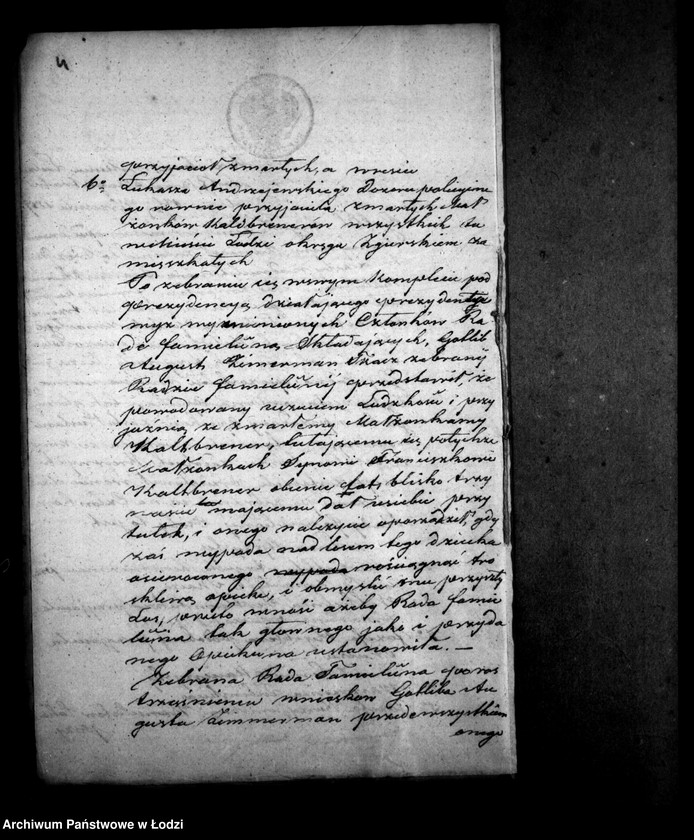 4
przyjaciół zmarłych, a wresicu
6o Łukasza Andrzejewskiego Dozoru policyine
go rownie przyjaciela zmarłych Mał
żonków Kaltbrenerów wszystkich tu
w mieście Łodzi okręgu Zgierskiem za
mieszkałych
To zebranie się w swym komplecie pod
prezydencyą działającego prezydenta z
wyż wymienionych Członków Ra
dę familiiną składających, Gotlib
August Zimerman Tkacz zebranej
Radzie familiinij przedstawił że
powodowany uczuciem Ludzkości i przy
jaźnią ze zmarłemy Małżonkamy
Kaltbrener, tułającemu się po tychże
Małżonkach Synowi Franciszkowi
Kaltbrener obecnie lat blisko trzy
naście mającemu dał u siebie przy
tułek, i onego należycie oporządził, gdy
zaś wypada nad losem tego dziecka
osieroconego wypada rościągnąć tro
skliwą opiekę, i obmyślić mu przyszły
Los, przeto wnosi ażeby Rada fami
liina tak głownego jako i przyda
nego Opiekuna ustanowiła. —
Zebrana Rada Familiina poroz
trząśnieniu wniosków Gotliba Au
gusta Zimmerman przedewszystkiem
onego
Archiwum Państwowe w Łodzi